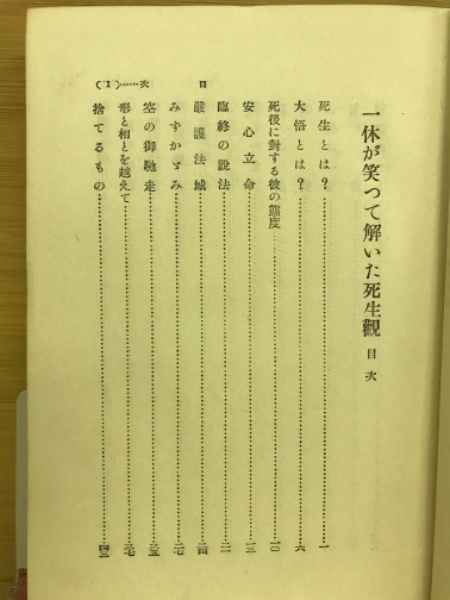 一休が笑つて解いた死生觀 目次
死生とは?……一
大悟とは?……六
死後に對する彼の態度……一〇
安心立命……一三
臨終の説法……二一
嚴護法城……二四
みすかゞみ……二七
空の御馳走……三五
形と相とを越えて……三七
捨てるもの……四三
目次……(1)